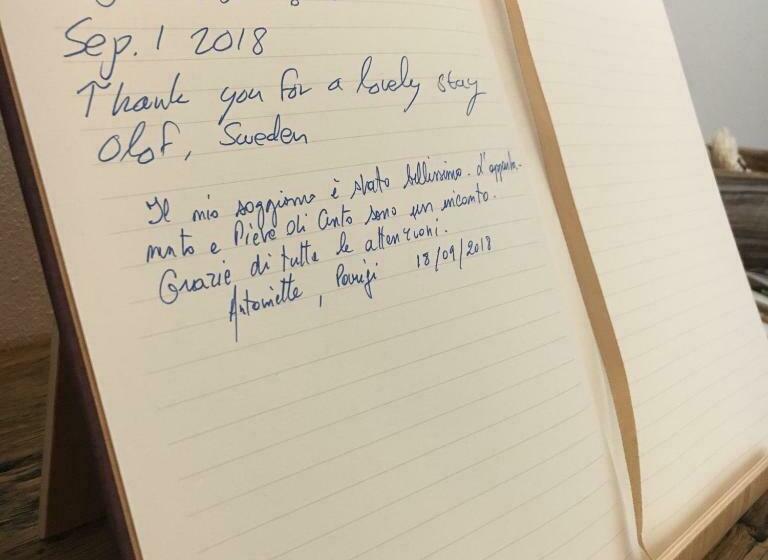 Sep. 1 2018
Thank you for a lovely stay
Olof, Sweden
Il mio soggiorno è stato bellissimo. L'apparta-
mento e Pieve di Cento sono un incanto.
Grazie di tutte le attenzioni.
Antoniette, Parigi 18/09/2018